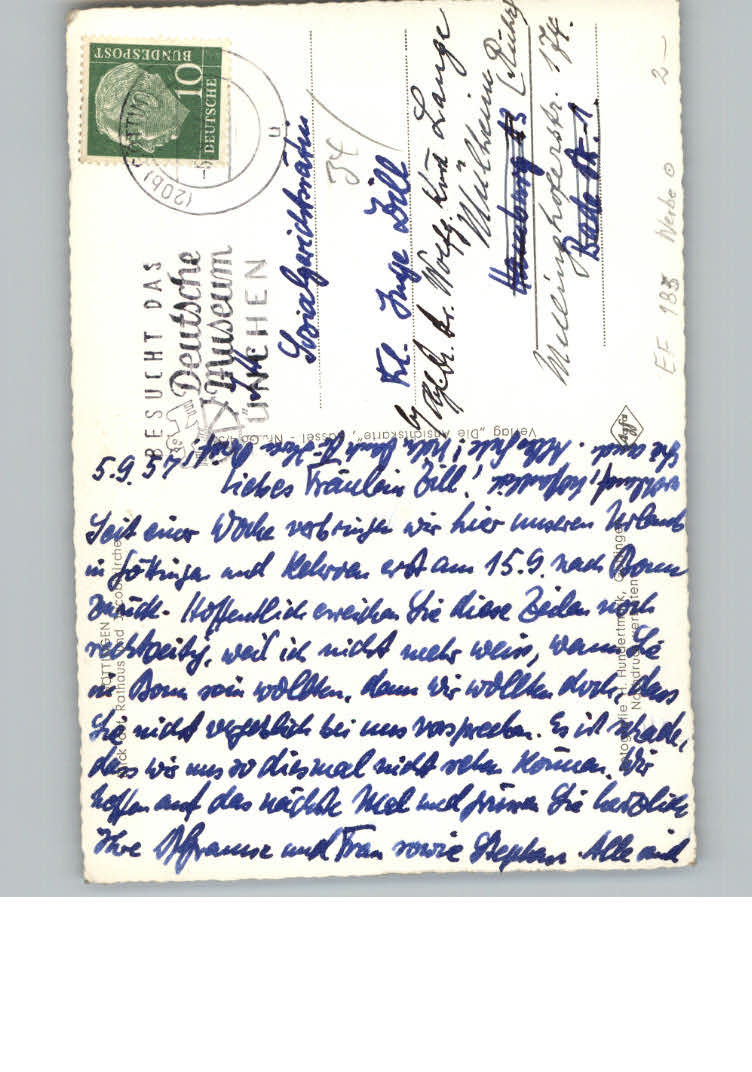 DEUTSCHE
BUNDESPOST
10
(20b) GÖTTINGEN
BESUCHT DAS
Deutsche
Museum
MÜNCHEN
Sozialgerichtsrätin
Frl. Inge Dill
Dr. Wolfg. Lange
Mülheim (Ruhr)
Hamburg 13
Mellinghoferstr. 174
34
2-
EF 183 Werbe
Verlag „Die Ansichtskarte", Kassel - Nr.
Agfa
GÖTTINGEN
Blick auf Rathaus und Jacobikirche
Fotografie H. Hundertmark, Göttingen
Nachdruck verboten
5.9.57
Liebes Fräulein Dill!
Seit einer Woche verbringen wir hier unseren Urlaub
in Göttingen und kehren erst am 15.9. nach Bonn
zurück. Hoffentlich erreichen Sie diese Zeilen noch
rechtzeitig, weil ich nicht mehr weiss, wann Sie
in Bonn sein wollten, denn wir wollten doch, dass
Sie nicht vergeblich bei uns vorsprechen. Es ist schade,
dass wir uns so diesmal nicht sehen können. Wir
hoffen auf das nächste Mal und grüssen Sie herzlich
Ihre und Frau sowie Stephan. Alle sind